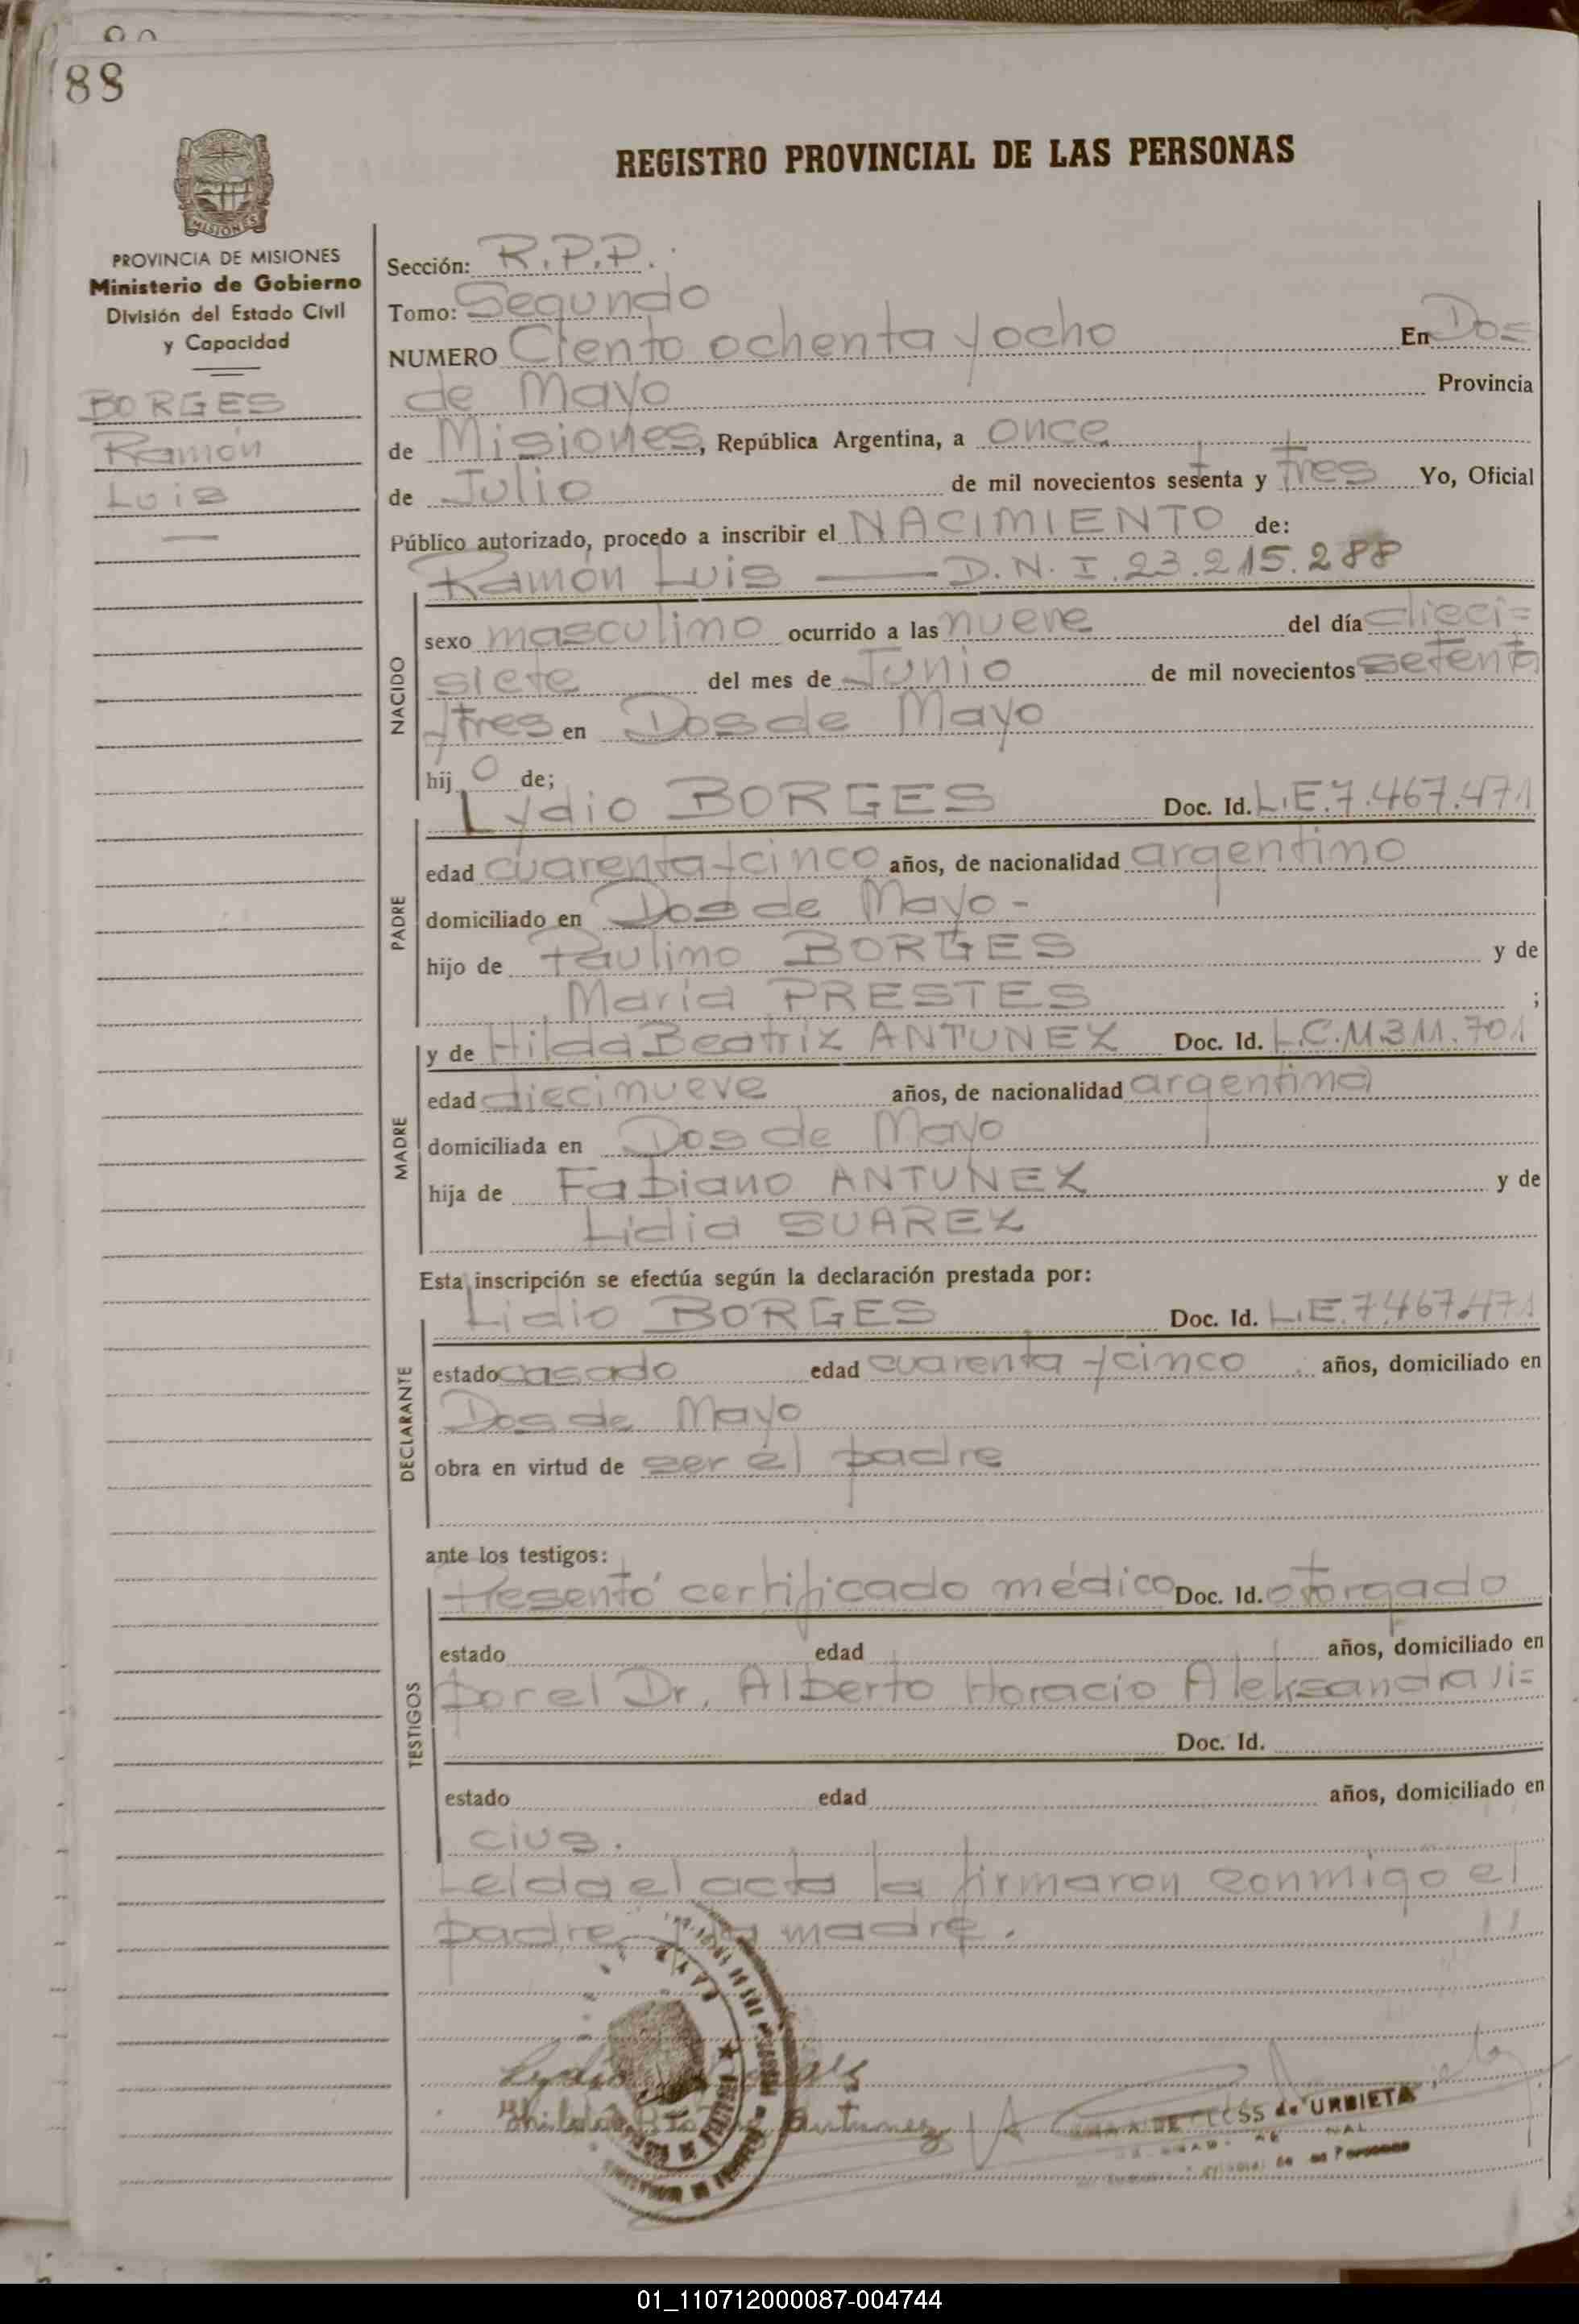 88
MISIONES
PROVINCIA DE MISIONES
Ministerio de Gobierno
División del Estado Civil
y Capacidad
BORGES
Ramón
Luis
REGISTRO PROVINCIAL DE LAS PERSONAS
Sección: R.P.P.
Tomo: Segundo
NUMERO Ciento ochenta y ocho En Dos
de Mayo Provincia
de Misiones, República Argentina, a once
de Julio de mil novecientos setenta y tres Yo, Oficial
Público autorizado, procedo a inscribir el NACIMIENTO de:
Ramón Luis — D.N.I. 23.215.288
NACIDO
sexo masculino ocurrido a las nueve del día dieci=
siete del mes de Junio de mil novecientos setenta
y tres en Dos de Mayo
hij o de;
Lydio BORGES Doc. Id. L.E. 7.467.471
PADRE
edad cuarenta y cinco años, de nacionalidad argentino
domiciliado en Dos de Mayo -
hijo de Paulino BORGES y de
María PRESTES ;
MADRE
y de Hilda Beatriz ANTUNEZ Doc. Id. L.C. 11.311.701
edad diecinueve años, de nacionalidad argentina
domiciliada en Dos de Mayo
hija de Fabiano ANTUNEZ y de
Lidia SUAREZ
Esta inscripción se efectúa según la declaración prestada por:
DECLARANTE
Lidio BORGES Doc. Id. L.E. 7.467.471
estado casado edad cuarenta y cinco años, domiciliado en
Dos de Mayo
obra en virtud de ser él padre
ante los testigos:
TESTIGOS
Presentó certificado médico Doc. Id. otorgado
estado edad años, domiciliado en
por el Dr. Alberto Horacio Aleksandravi=
Doc. Id.
estado edad años, domiciliado en
cius.
Leída el acta la firmaron conmigo el
padre y la madre.
Lydio
Antunez
de URBIETA
01_110712000087-004744